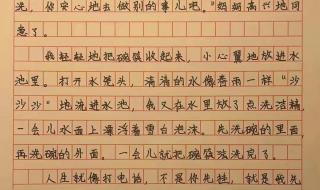 洗，你安心地去做别的事儿吧。”妈妈高兴地同
意了。
我轻轻地把碗筷收起来，小心翼地放进水
池里。打开水笼头，清清的水像雷雨一样“沙
沙沙”地流进水池，我又在水里放了点洗洁精
一会儿水面上漂浮着雪白泡沫。先洗碗的里面，
再洗碗的外面。一会儿就把碗筷洗完了。
人生就像打电话，不是你先挂，就是我先